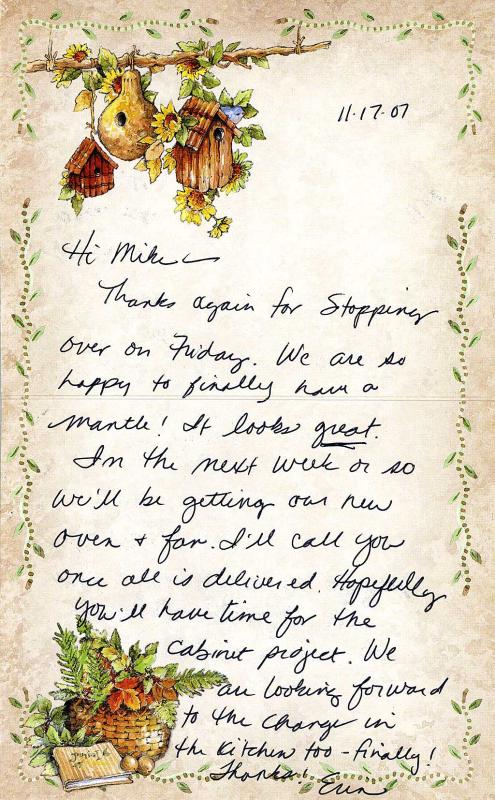 11-17-07
Hi Mike —
Thanks again for Stopping
over on Friday. We are so
happy to finally have a
mantle! It looks great.
In the next week or so
we'll be getting our new
oven + fan. I'll call you
once all is delivered. Hopefully
you'll have time for the
cabinet project. We
are looking forward
to the change in
the kitchen too - finally!
Thanks! Erin